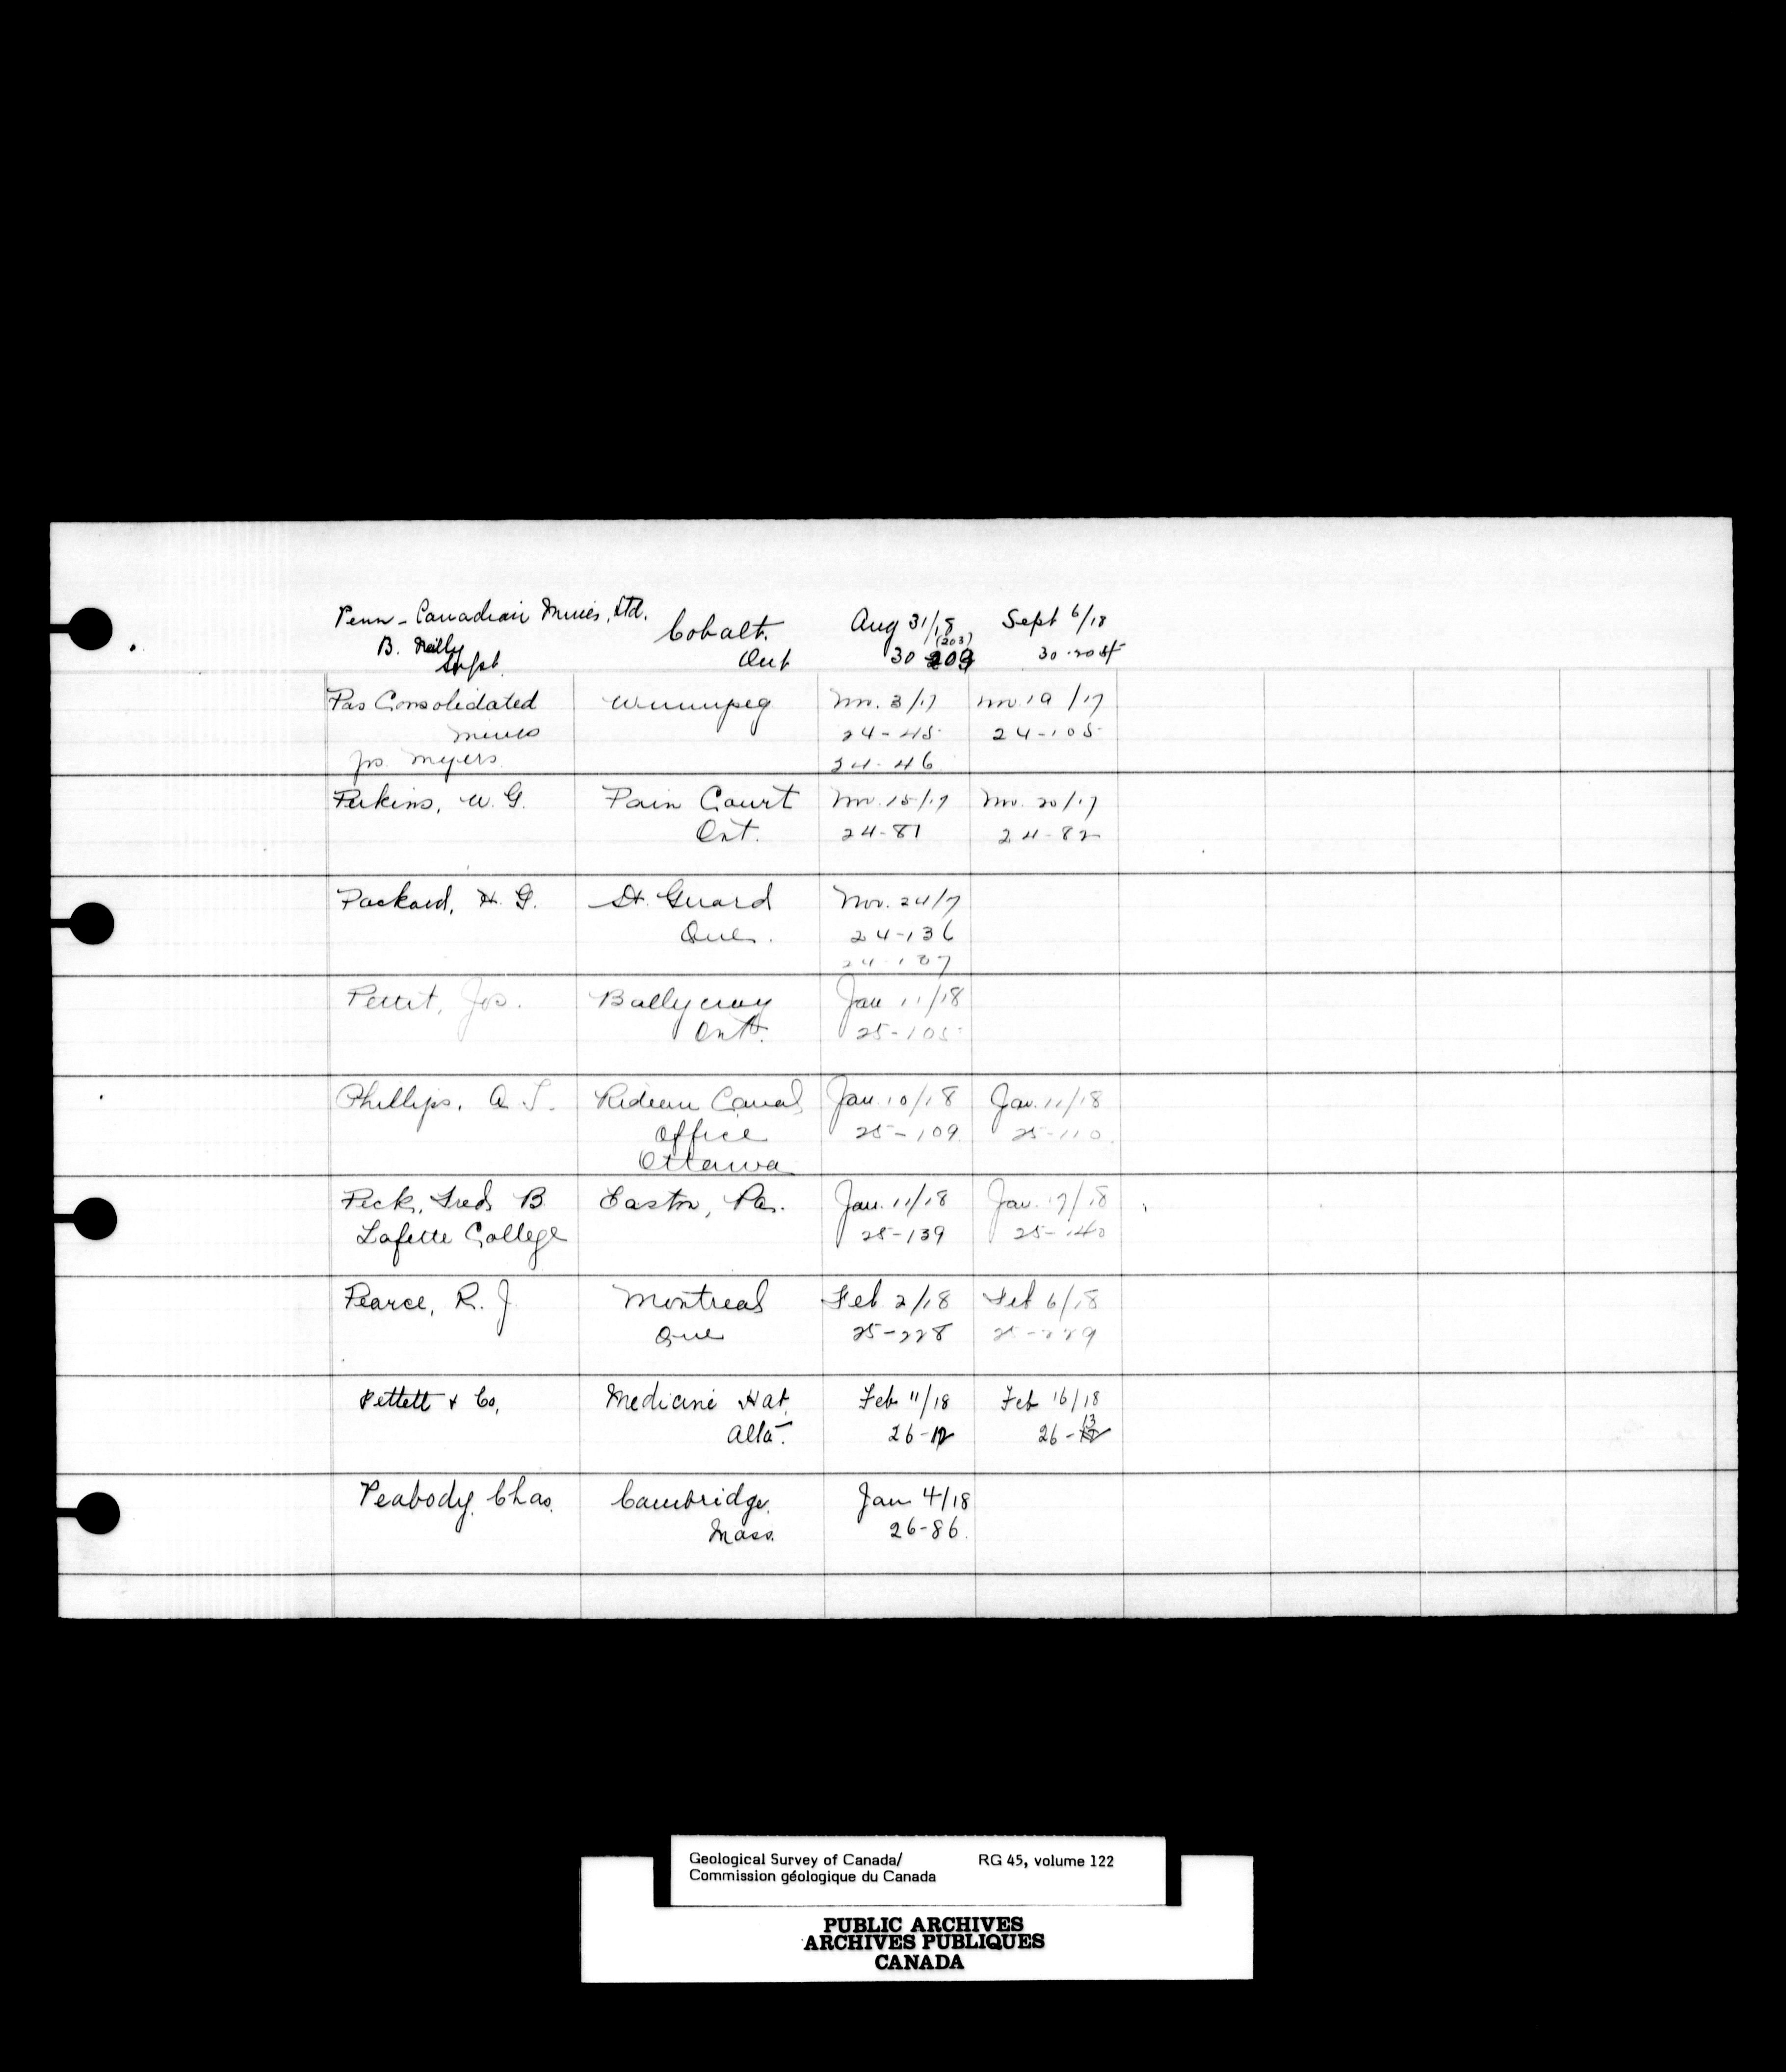 Penn-Canadian Mines, Ltd. Cobalt. Aug 31/18 Sept 6/18
B. Neilly Supt. Ont 30 209 (203) 30-204
Pas Consolidated Winnipeg Nov. 3/17 Nov. 19/17
Mines 24-45 24-105
Jos. Myers 24-46
Perkins, W. G. Pain Court Nov. 15/17 Nov. 20/17
Ont. 24-81 24-82
Packard, H. G. St. Gerard Nov. 24/17
Que. 24-136
24-137
Pettit, Jos. Ballycroy Jan 11/18
Ont. 25-105
Phillips, A T. Rideau Canal Jan. 10/18 Jan. 11/18
Office 25-109 25-110
Ottawa
Peck, Fred B Easton, Pa. Jan. 11/18 Jan. 17/18
Lafette College 25-139 25-140
Pearce, R. J Montreal Feb. 2/18 Feb 6/18
Que 25-228 25-229
Pettett & Co, Medicine Hat, Feb 11/18 Feb 16/18
Alta. 26-12 26-13
Peabody, Chas. Cambridge, Jan 4/18
Mass. 26-86.
Geological Survey of Canada/ RG 45, volume 122
Commission géologique du Canada
PUBLIC ARCHIVES
ARCHIVES PUBLIQUES
CANADA